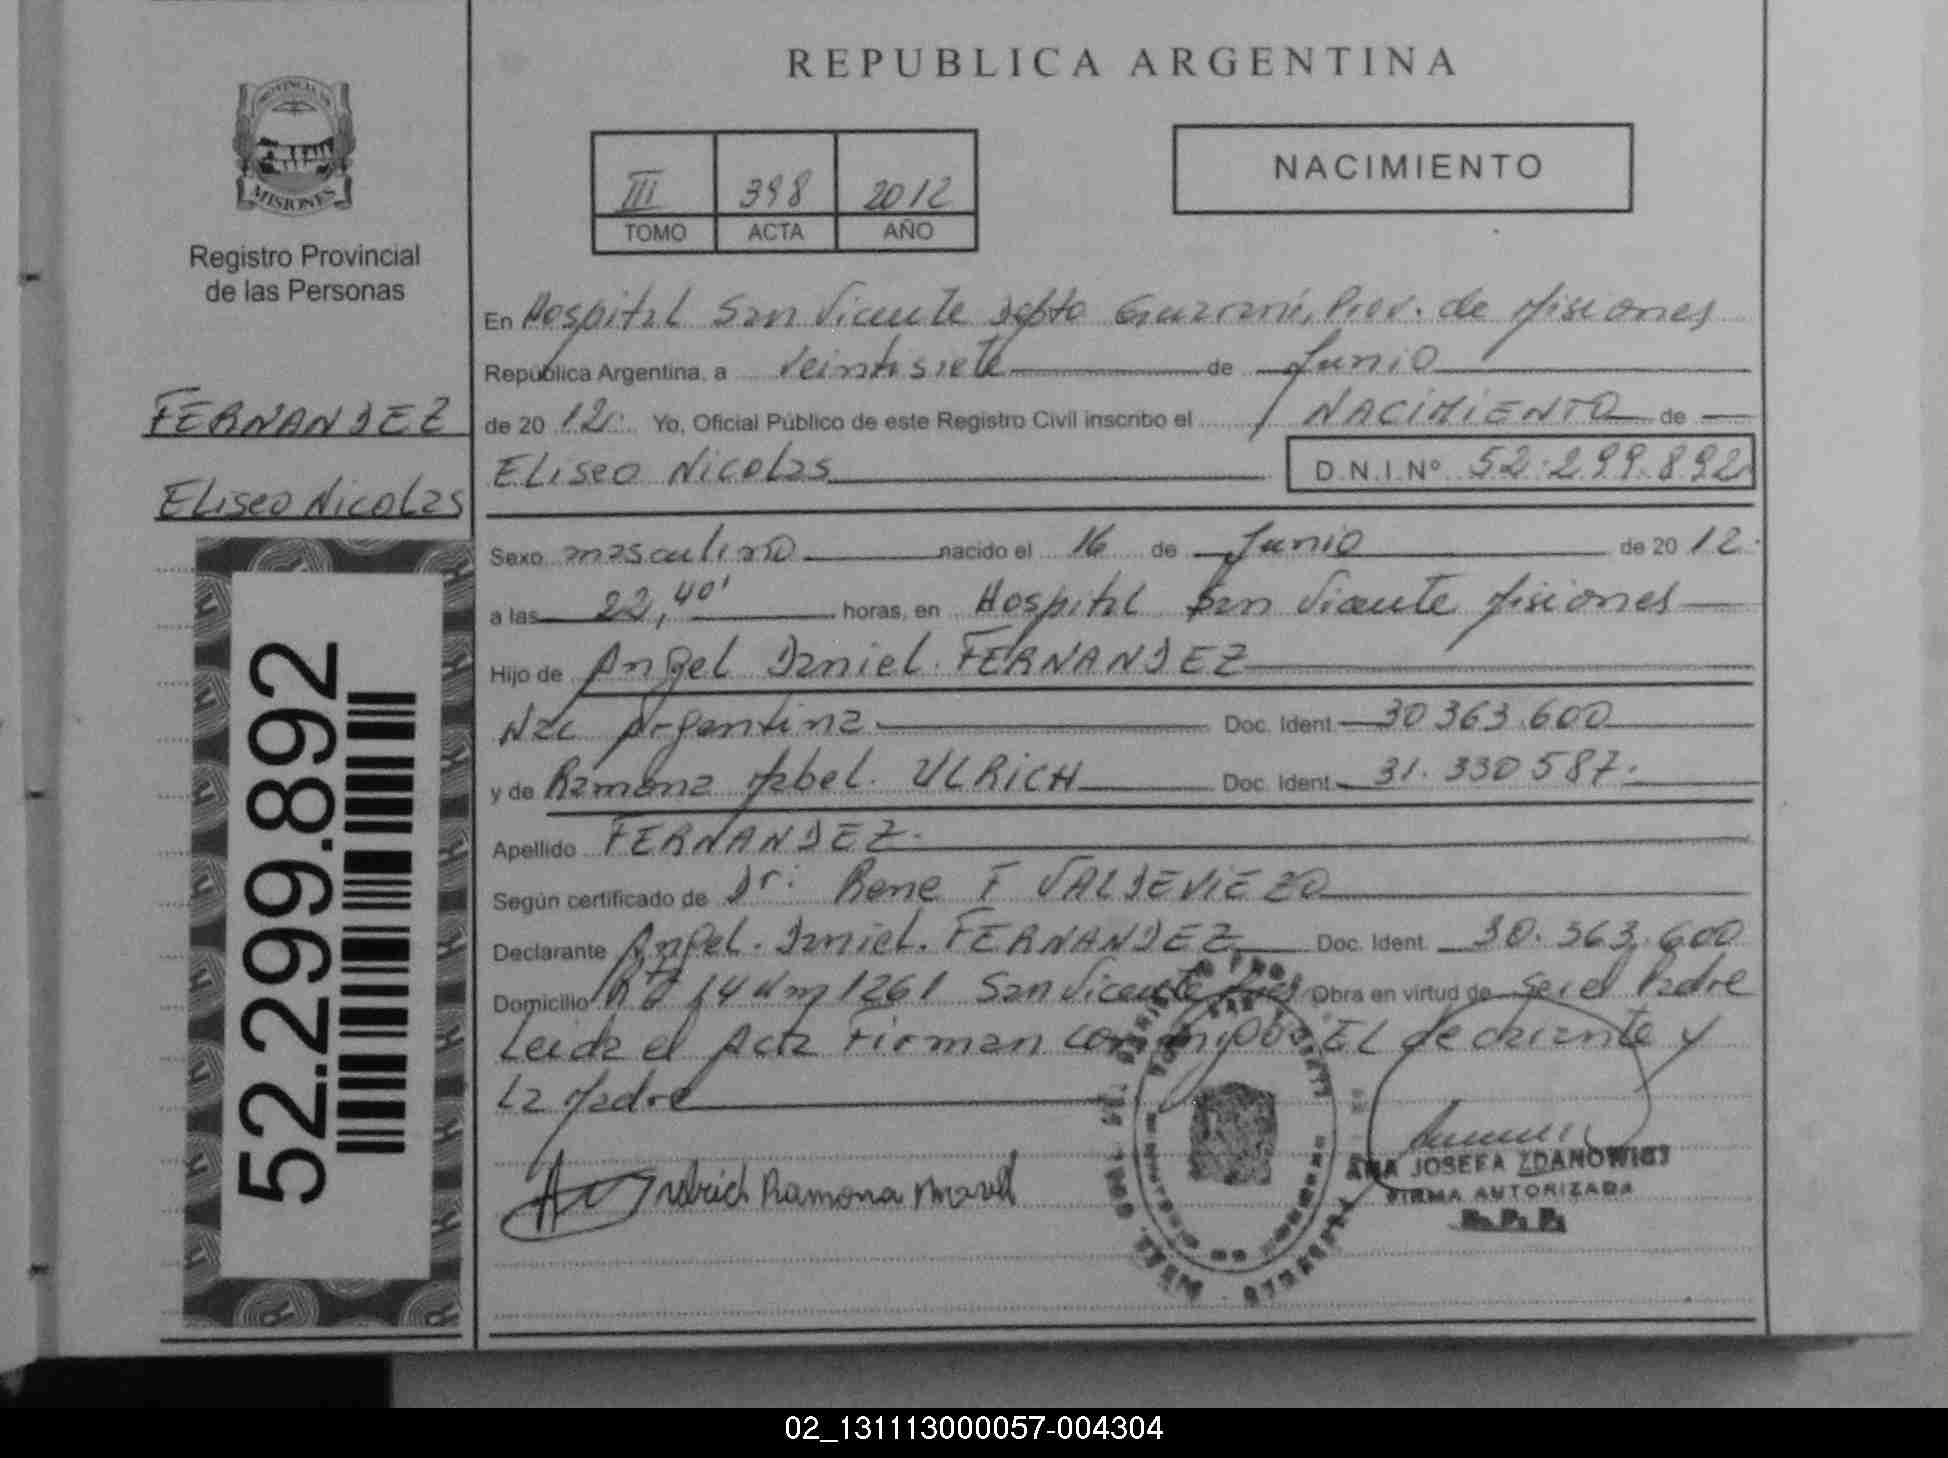 REPUBLICA ARGENTINA
PROVINCIA DE
MISIONES
Registro Provincial
de las Personas
III 398 2012
TOMO ACTA AÑO
NACIMIENTO
FERNANDEZ
Eliseo Nicolas
52.299.892
En Hospital San Vicente Depto Guarani, Prov. de Misiones
República Argentina, a veintisiete de Junio
de 2012. Yo, Oficial Público de este Registro Civil inscribo el NACIMIENTO de
Eliseo Nicolas D.N.I.Nº 52.299.892
Sexo masculino nacido el 16 de Junio de 2012.
a las 22,40' horas, en Hospital San Vicente Misiones
Hijo de Angel Daniel FERNANDEZ
Nac Argentina Doc. Ident. 30 363.600
y de Ramona Mabel. ULRICH Doc. Ident. 31.330 587.
Apellido FERNANDEZ.
Según certificado de Dr: Rene F VALDEVIEZO
Declarante Angel. Daniel. FERNANDEZ Doc. Ident. 30.363.600
Domicilio Rta 14 Km 1261 San Vicente Obra en virtud de ser el Padre
Leida el Acta Firman conmigo El declarante y
la Madre
Ramona
ANA JOSEFA ZDANOWICZ
FIRMA AUTORIZADA
R.P.P.
02_131113000057-004304